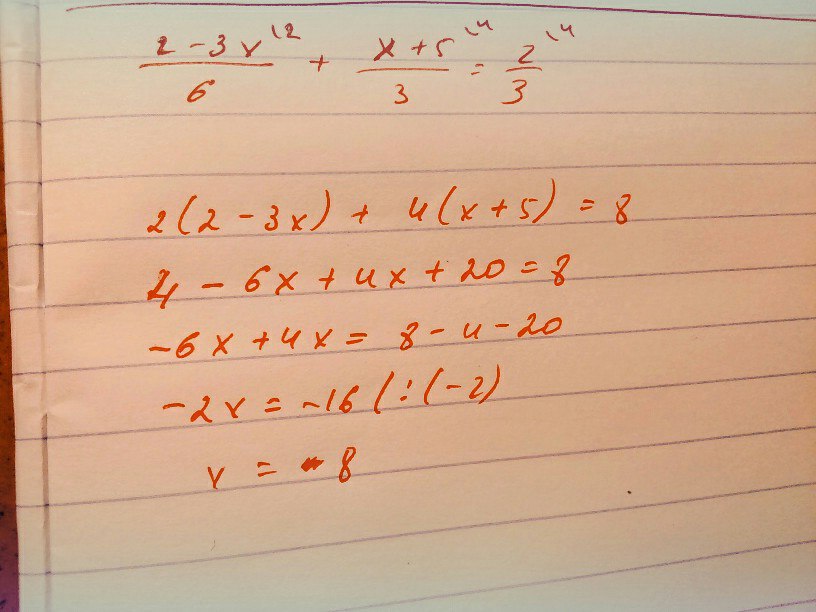 (2 - 3x)\2/6 + (x + 5)\4/3 = 2\4/3
2(2 - 3x) + 4(x + 5) = 8
4 - 6x + 4x + 20 = 8
-6x + 4x = 8 - 4 - 20
-2x = -16 (:(-2)
x = 8